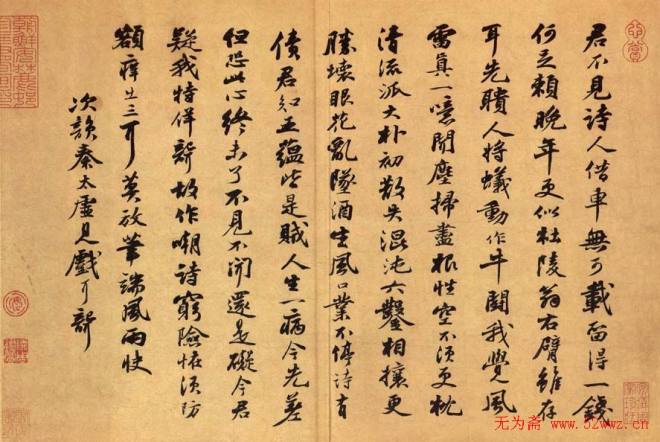 君不見詩人借車無可載留得一錢
何足賴晚年更似杜陵翁右臂雖存
耳先聵人將蟻動作牛鬪我覺風
雷真一噫聞塵掃盡根性空不須更枕
清流派大朴初散失混沌六鑿相攘更
勝壞眼花亂墜酒生風口業不停詩有
債君知五蘊皆是賊人生一病今先差
但恐此心終未了不見不聞還是礙今君
疑我特佯聾故作嘲詩窮險怪須防
額癢出三耳莫放筆端風雨快
次韻秦太虛見戲耳聾
无为斋 www.52wwz.cn